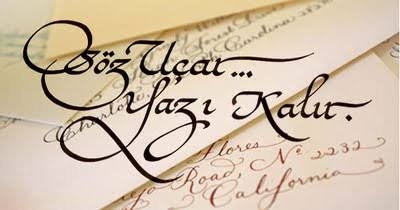 Söz Uçar...
Yazı Kalır.
Forest
Carolina
Charlotte,
Flores
Road, Nº 2232
California